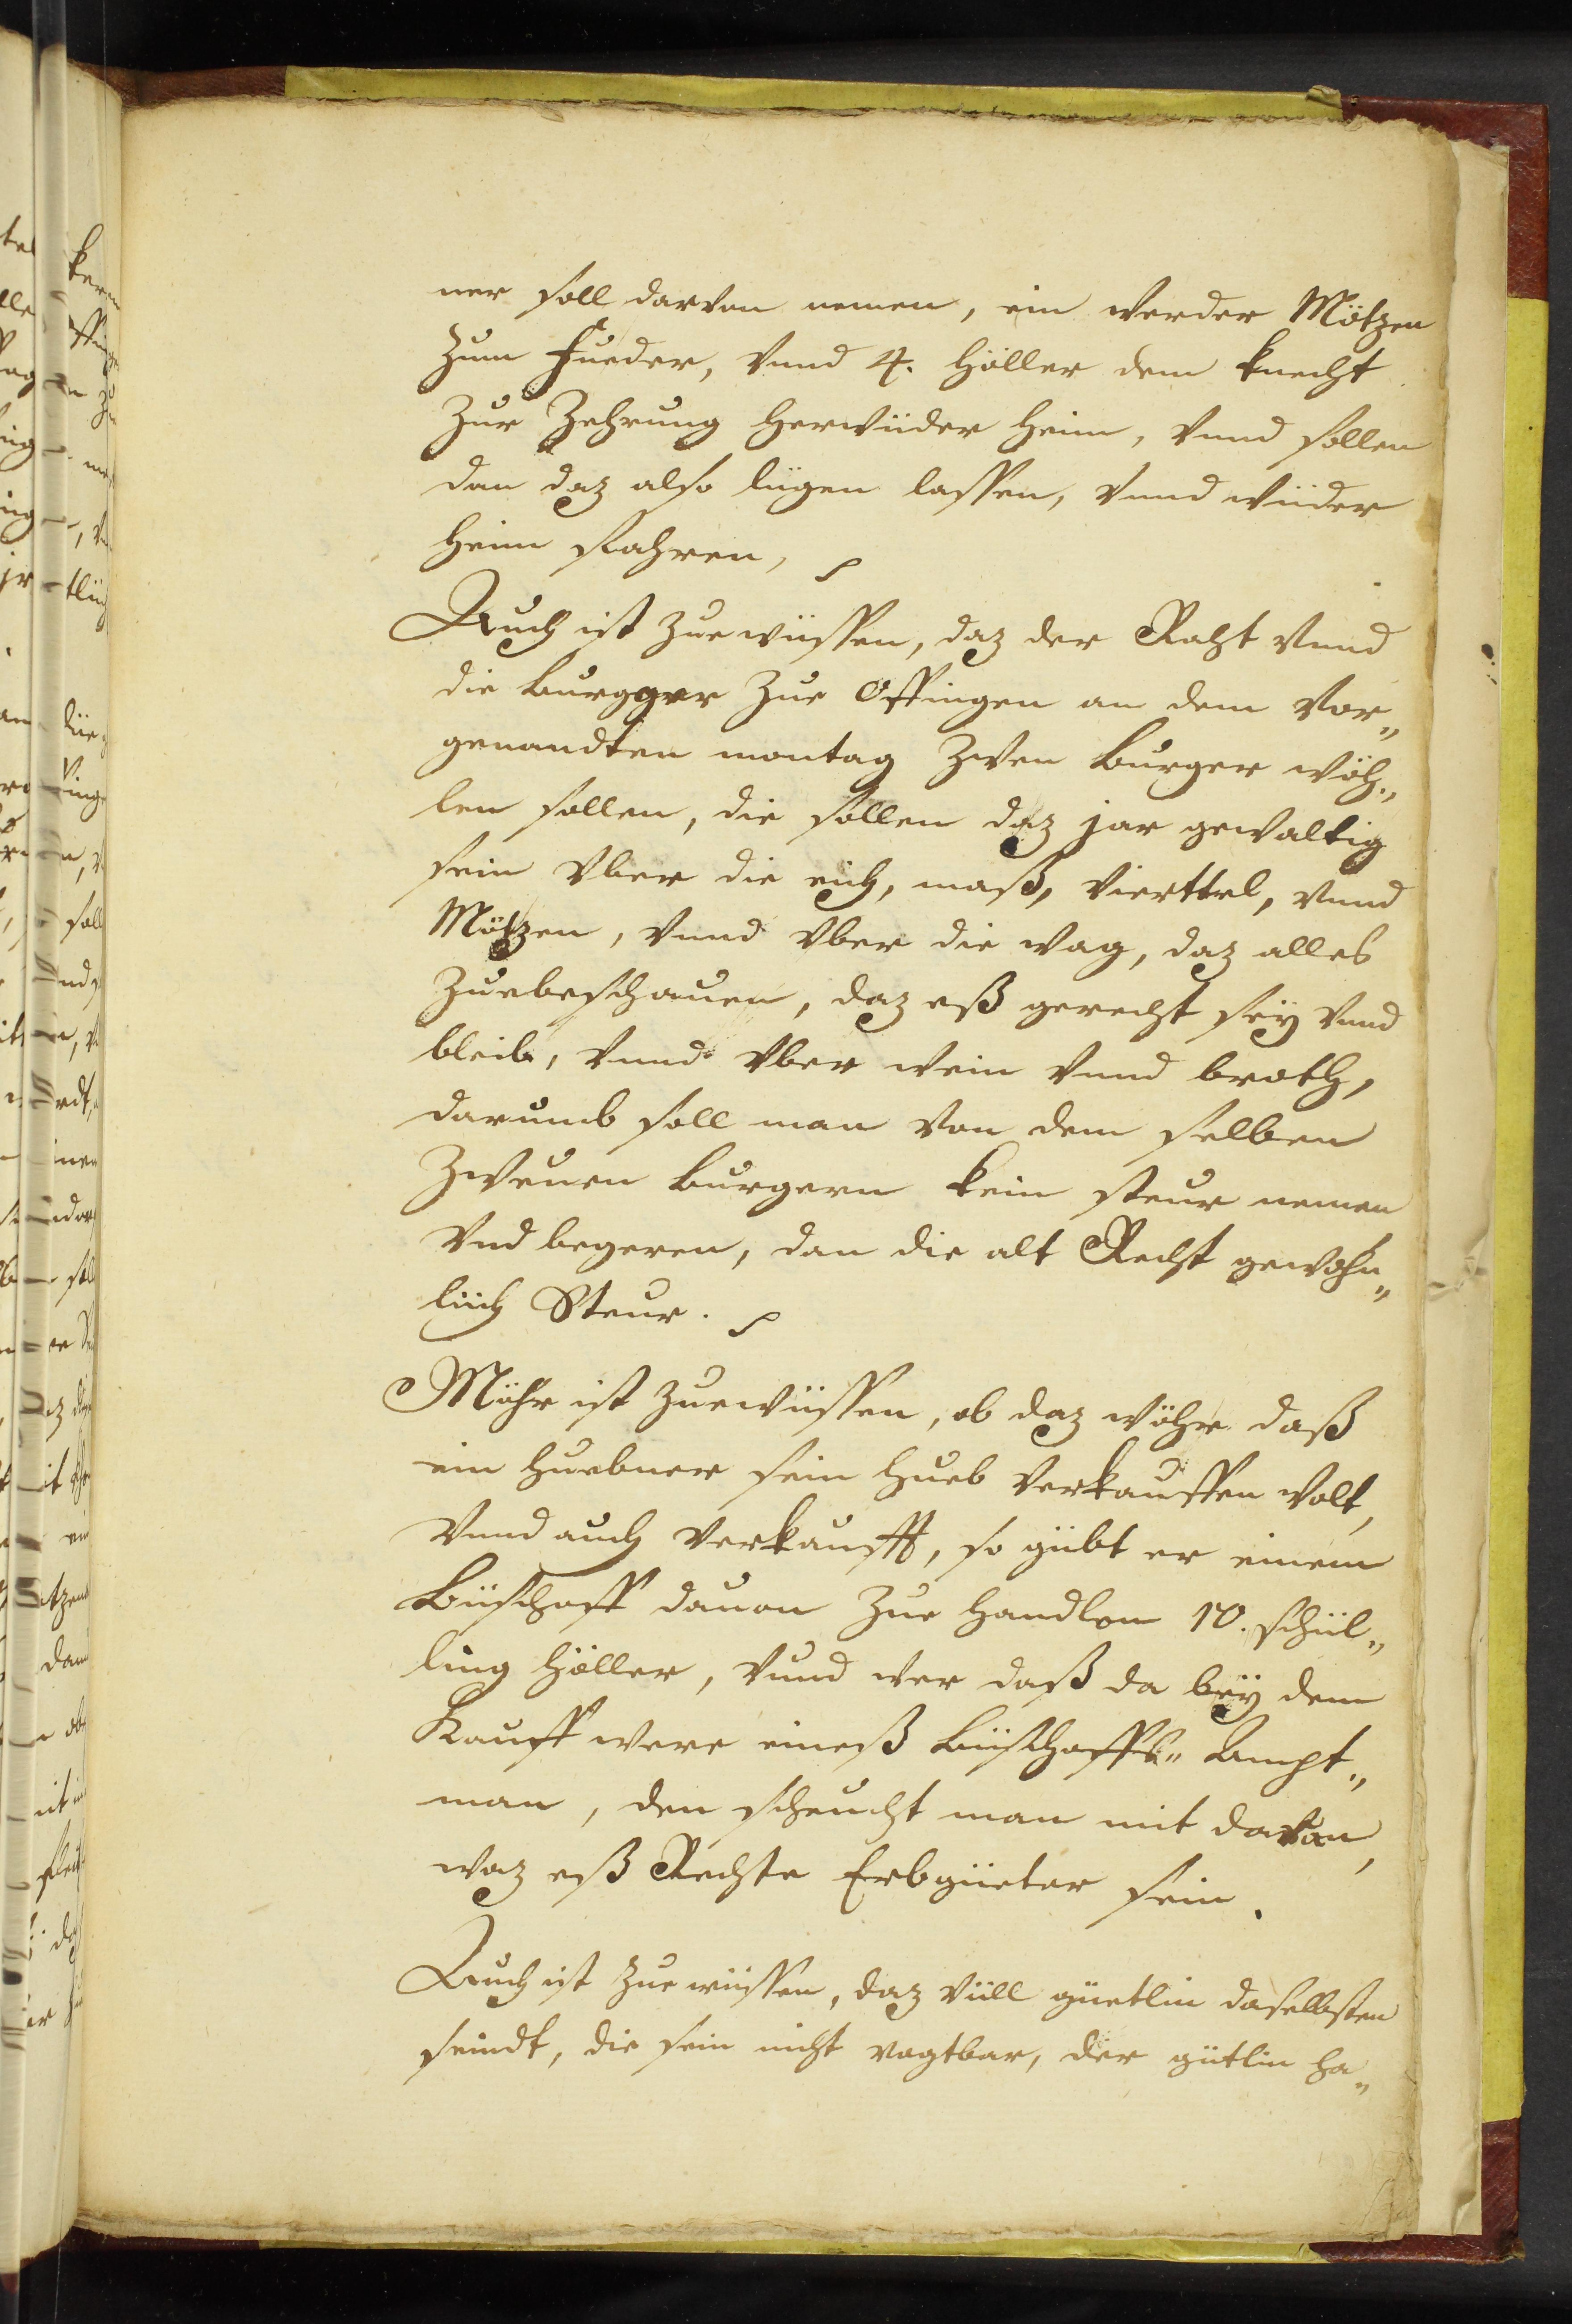 ner soll darvon nemen, ein werder Mötzen
Zum Fueder, Vnnd 4. Höller dem knecht
Zur Zehrung Herwiider Heim, Vnnd sollen
dan daz also liigen lassen, Vnnd wiider
Heim fahren,
Auch ist Zue wüssen, daz der Raht Vnnd
die Burgger Zue Offingen an dem Vor„
genandten montag Zwen Burger wöh„
len sollen, die sollen daz jar gewaltig
sein Vber die eich, mäß, Vierttel, Vnnd
Mötzen, Vnnd Vber die wag, daz alles
Zuebeschauen, daz eß gerecht seÿ Vnnd
bleib, Vnnd Vber wein Vnnd broth,
darumb soll man Von dem selben
Zweuen Burgern kein steur nemen
Vnd begeren, dan die alt Recht gewohn„
liich Steur.
Möhr ist Zuewüssen, ob daz wöhre daß
ein Huebner sein Hueb Verkauffen wolt,
Vnnd auch Verkaufft, so gübt er einem
Büschoff dauon Zue Handlon 10. schiil„
ling Höller, Vnnd wer daß da beÿ dem
Kauff were eineß Büschoffs„ Ampt„
man, den scheucht man mit davon,
waz eß Rechte Erbgüeter sein.
Auch ist Zue wüssen, daz Viill güetlin daselbsten
seindt, die sein nicht vogtbar, der güetlin ha„